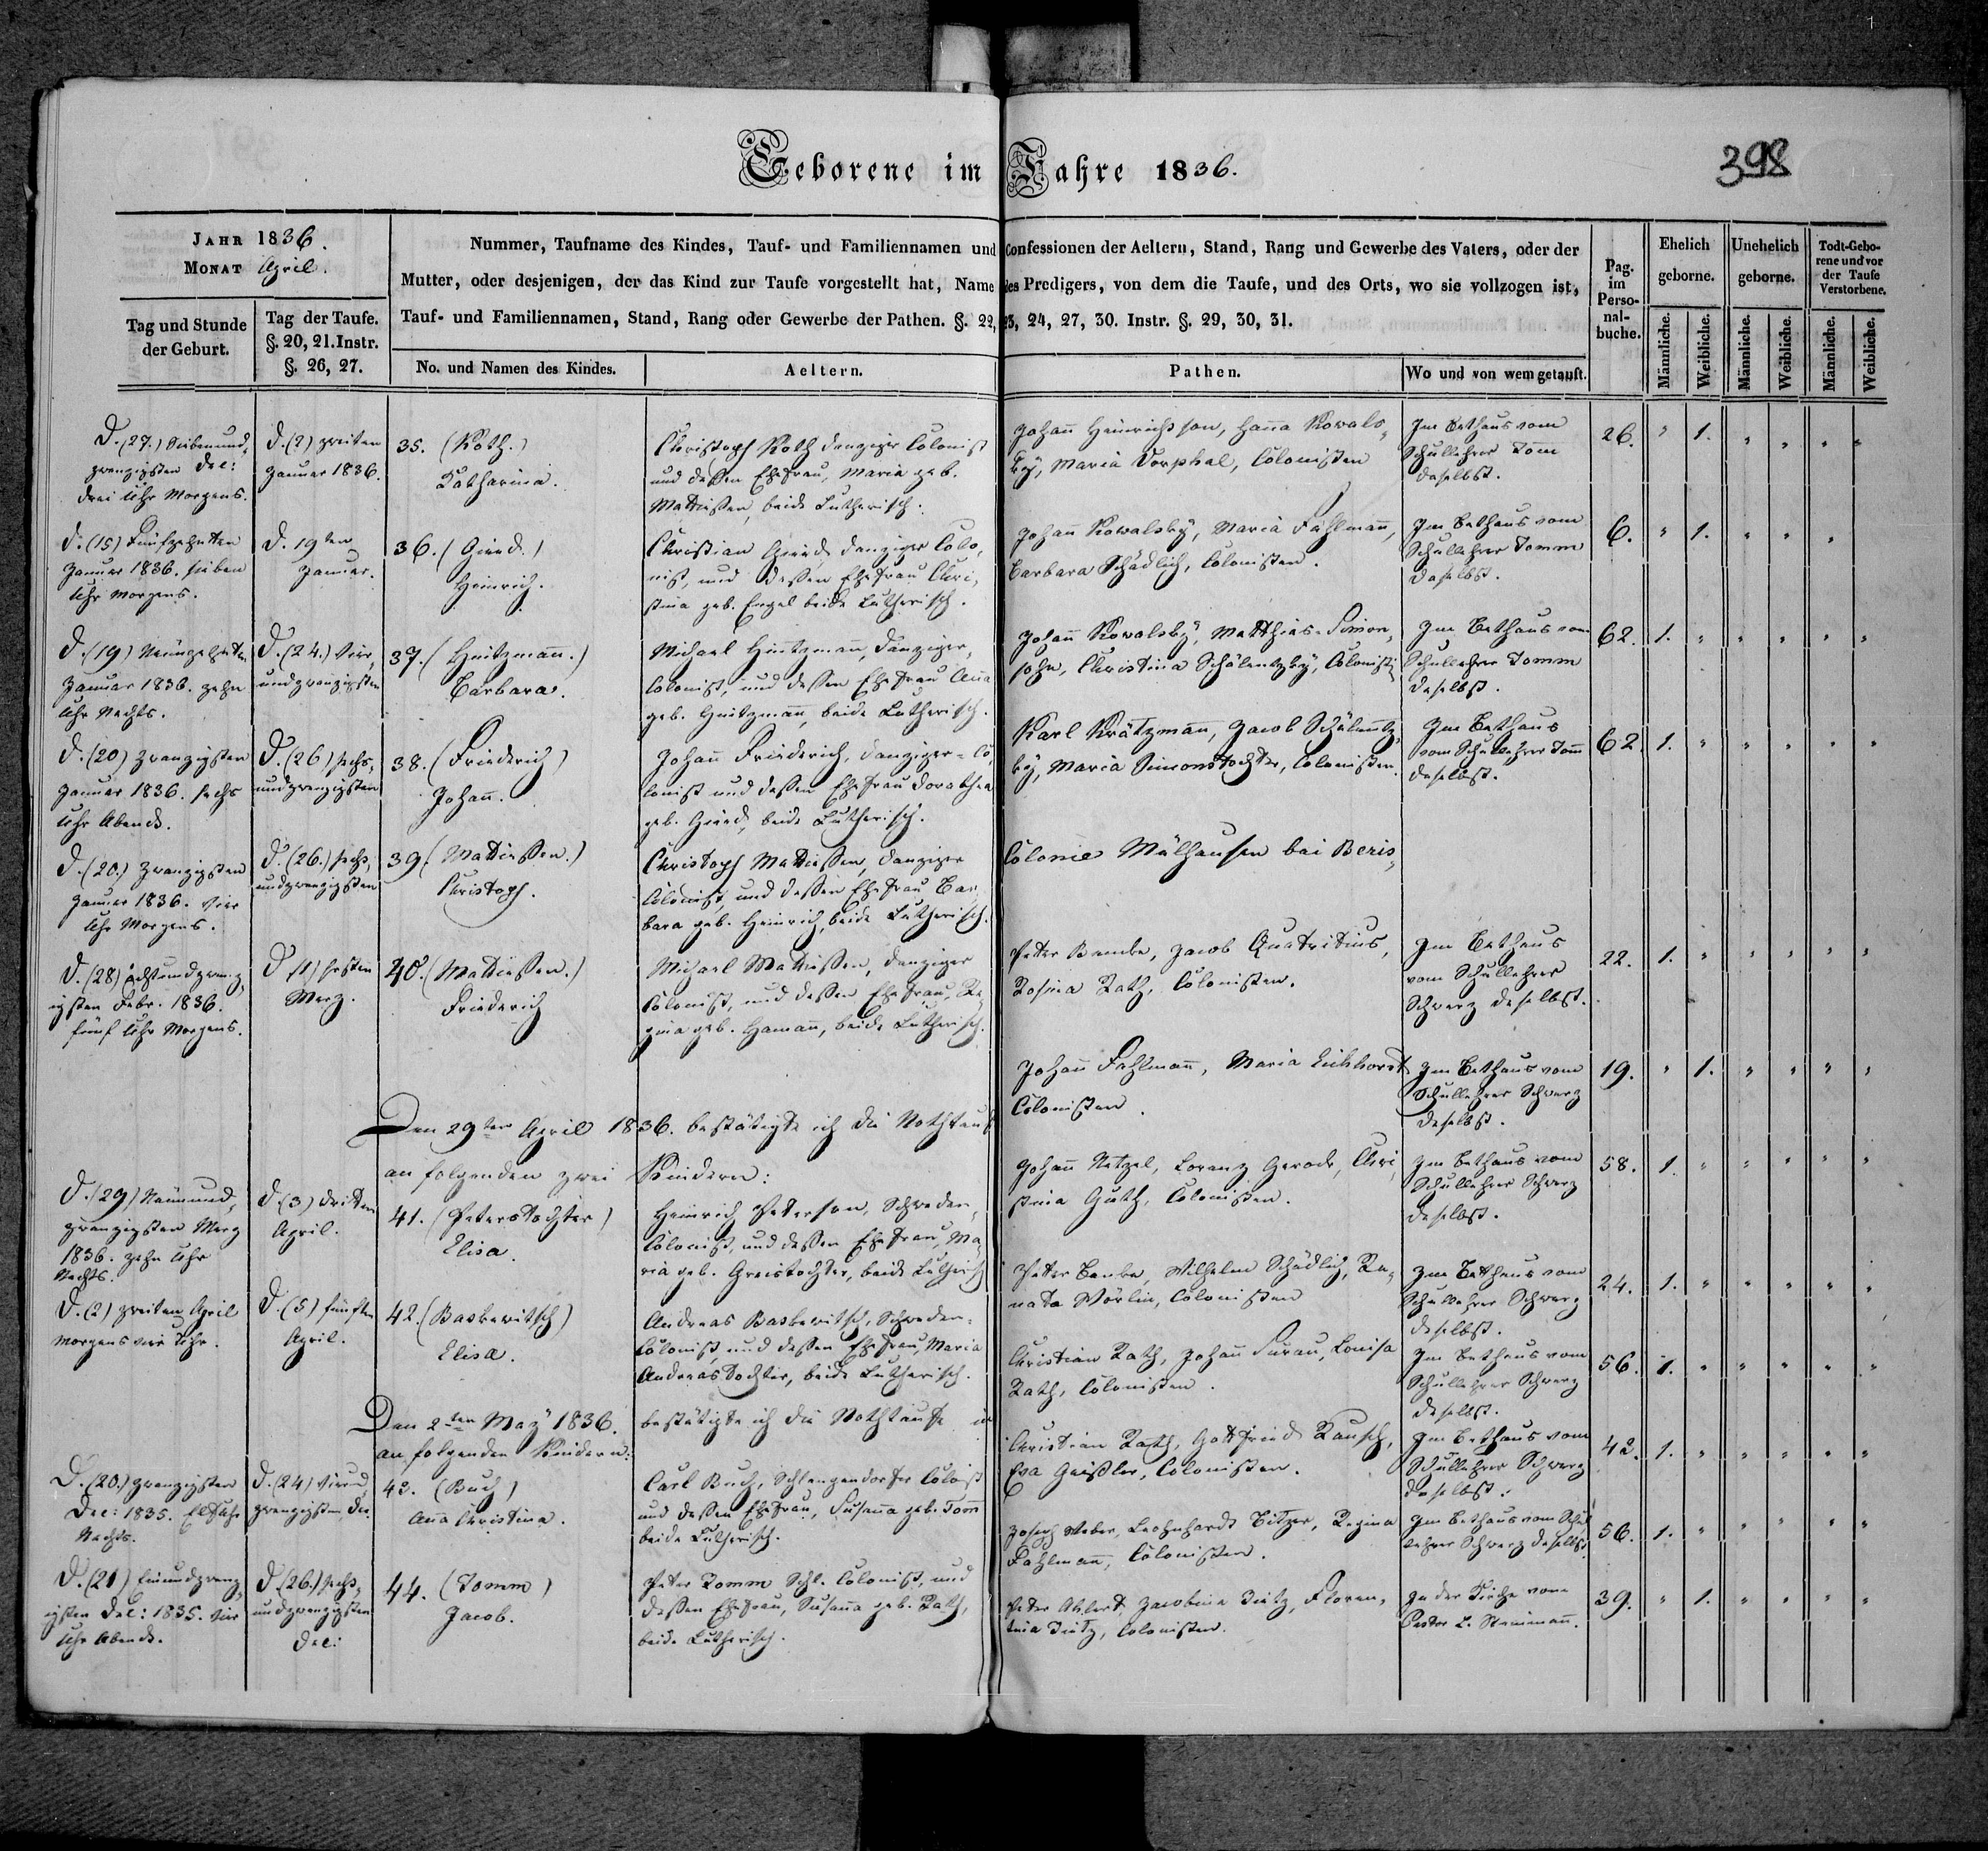 398
Geborene im Jahre 1836.
JAHR 1836.
MONAT April.
Tag und Stunde
der Geburt.
Tag der Taufe.
§. 20, 21. Instr.
§. 26, 27.
Nummer, Taufname des Kindes, Tauf- und Familiennamen und Confessionen der Aeltern, Stand, Rang und Gewerbe des Vaters, oder der
Mutter, oder desjenigen, der das Kind zur Taufe vorgestellt hat, Name des Predigers, von dem die Taufe, und des Orts, wo sie vollzogen ist,
Tauf- und Familiennamen, Stand, Rang oder Gewerbe der Pathen. §. 22, 23, 24, 27, 30. Instr. §. 29, 30, 31.
No. und Namen des Kindes.
Aeltern.
Pathen.
Wo und von wem getauft.
Pag.
im
Perso-
nal-
buche.
Ehelich
geborne.
Unehelich
geborne.
Todt-Gebo-
rene und vor
der Taufe
Verstorbene.
Männliche.
Weibliche.
Männliche.
Weibliche.
Männliche.
Weibliche.
D. (27.) Siebenund-
zwanzigsten Dec:
drei Uhr Morgens.
D. (2) zweiten
Januar 1836.
35. (Roth.)
Katharina.
Christoph Roth danziger Colonist
und dessen Ehefrau, Maria geb.
Mathiessen, beide Lutherisch.
D. (15) Fünfzehnten
Januar 1836. sieben
Uhr Morgens.
D. 19ten
Januar.
36. (Gierd.)
Heinrich.
Christian Gierd, danziger Colo-
nist, und dessen Ehefrau Chri-
stina geb. Engel beide Lutherisch.
D. (19) Neunzehnten
Januar 1836. zehn
Uhr Nachts.
D. (24.) Vier-
undzwanzigsten
37. (Hintzmann.)
Barbara.
Michael Hintzmann, danziger-
Colonist, und dessen Ehefrau Anna
geb. Hintzmann, beide Lutherisch.
D. (20) Zwanzigsten
Januar 1836. sechs
Uhr Abends.
D. (26) sechs-
undzwanzigsten
38. (Friederich)
Johann.
Johann Friederich, danziger-Co-
lonist und dessen Ehefrau Dorothea
geb. Gierd, beide Lutherisch.
D. (20.) Zwanzigsten
Januar 1836. vier
Uhr Morgens.
D. (26.) sechs-
undzwanzigsten
39. (Mathiessen.)
Christoph.
Christoph Mathiessen, danziger
Colonist, und dessen Ehefrau Bar-
bara geb. Heinrich, beide Lutherisch.
D. (28) achtundzwanz-
igsten Febr. 1836.
fünf Uhr Morgens.
D (1) ersten
Merz.
40. (Mathiessen.)
Friederich
Michael Mathiessen, danziger
Colonist, und dessen Ehefrau, Re-
gina geb. Hamann, beide Lutherisch.
Den 29ten April 1836. bestätigte ich die Nothtaufe
an folgenden zwei Kindern:
D. (29) Neunund-
zwanzigsten Merz
1836. zehn Uhr
Nachts.
D. (3) dritten
April.
41. (Peterstochter)
Elisa.
Heinrich Peterson, Schweden-
Colonist, und dessen Ehefrau, Ma-
ria geb. Greistochter, beide Lutherisch
D. (2) zweiten April
Morgens vier Uhr.
D. (5) fünften
April.
42. (Baskewitsch)
Elisa.
Andreas Baskewitsch, Schweden-
Colonist, und dessen Ehefrau, Maria
Andreastochter, beide Lutherisch.
Den 2ten May 1836. bestätigte ich die Nothtaufe
an folgenden Kindern:
D. (20.) zwanzigsten
Dec: 1835. Elf Uhr
Nachts.
D. (24) Vierund-
zwanzigsten Dec
43. (Buch)
Anna Christina.
Carl Buch, Schlangendorfer Colonist
und dessen Ehefrau, Susanna geb. Tomm
beide Lutherisch.
D. (21) Einundzwanz-
igsten Dec: 1835. vier
Uhr Abends.
D. (26.) sechs-
undzwanzigsten
Dec:
44. (Tomm)
Jacob.
Peter Tomm Schl. Colonist, und
dessen Ehefrau, Susanna geb. Rath,
beide Lutherisch.
Johann Heinrichsson, Hanna Kowals-
ky, Maria Dorphal, Colonisten
Im Bethaus vom
Schullehrer Tomm
daselbst.
26. " 1. " " " "
Johann Kowalsky, Maria Fahlmann,
Barbara Schädlich, Colonisten.
Im Bethaus vom
Schullehrer Tomm
daselbst.
6. " 1. " " "
Johann Kowalsky, Matthias Simon-
sohn, Christina Schälentzky, Colonisten
Im Bethaus vom
Schullehrer Tomm
daselbst.
62. 1. " " " " "
Karl Krätzmann, Jacob Schälentz-
ky, Maria Simonstochter, Colonisten.
Im Bethaus
vom Schullehrer Tomm
daselbst.
62. 1. " " " " "
Colonie Mülhausen bei Beris-
Peter Bambe, Jacob Quatritius,
Rosina Rath, Colonisten.
Im Bethaus
vom Schullehrer
Schwarz daselbst.
22. 1. " " " " "
Johann Fahlmann, Maria Eichhorst
Colonisten.
Im Bethaus vom
Schullehrer Schwarz
daselbst.
19. " 1. " " " "
Johann Netzel, Lorenz Gerode, Chri-
stina Guth, Colonisten.
Im Bethaus vom
Schullehrer Schwarz
daselbst.
58. 1. " " " " "
Peter Bambe, Wilhelm Schädlich, Re-
nata Wörlin, Colonisten
Im Bethaus vom
Schullehrer Schwarz
daselbst.
24. 1. " " " " "
Christian Rath, Johann Furau, Louisa
Rath, Colonisten.
Im Bethaus vom
Schullehrer Schwarz
daselbst.
56. 1. " " " " "
Christian Rath, Gottfried Rausch,
Eva Geissler, Colonisten.
Im Bethaus vom
Schullehrer Schwarz
daselbst.
42. 1. " " " " "
Joseph Weber, Leohnhardt Bitzer, Regina
Fahlmann, Colonisten.
Im Bethaus vom Schul-
lehrer Schwarz daselbst.
56. 1. " " " " "
Peter Ahlert Jacobina Dietz, Floren-
tina Dietz, Colonisten.
In der Kirche vom
Pastor L. Steinmann.
39. " 1. " " " "